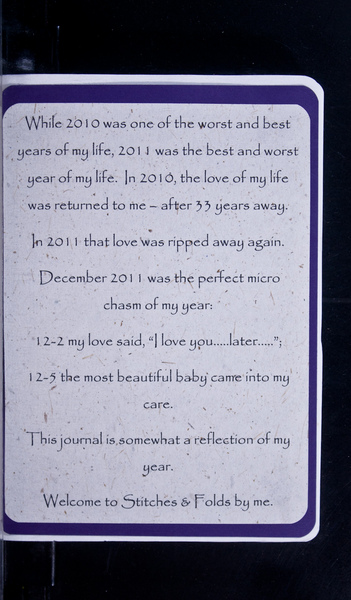 While 2010 was one of the worst and best
years of my life, 2011 was the best and worst
year of my life. In 2010, the love of my life
was returned to me – after 33 years away.
In 2011 that love was ripped away again.
December 2011 was the perfect micro
chasm of my year:
12-2 my love said, "I love you.....later.....";
12-5 the most beautiful baby came into my
care.
This journal is somewhat a reflection of my
year.
Welcome to Stitches & Folds by me.